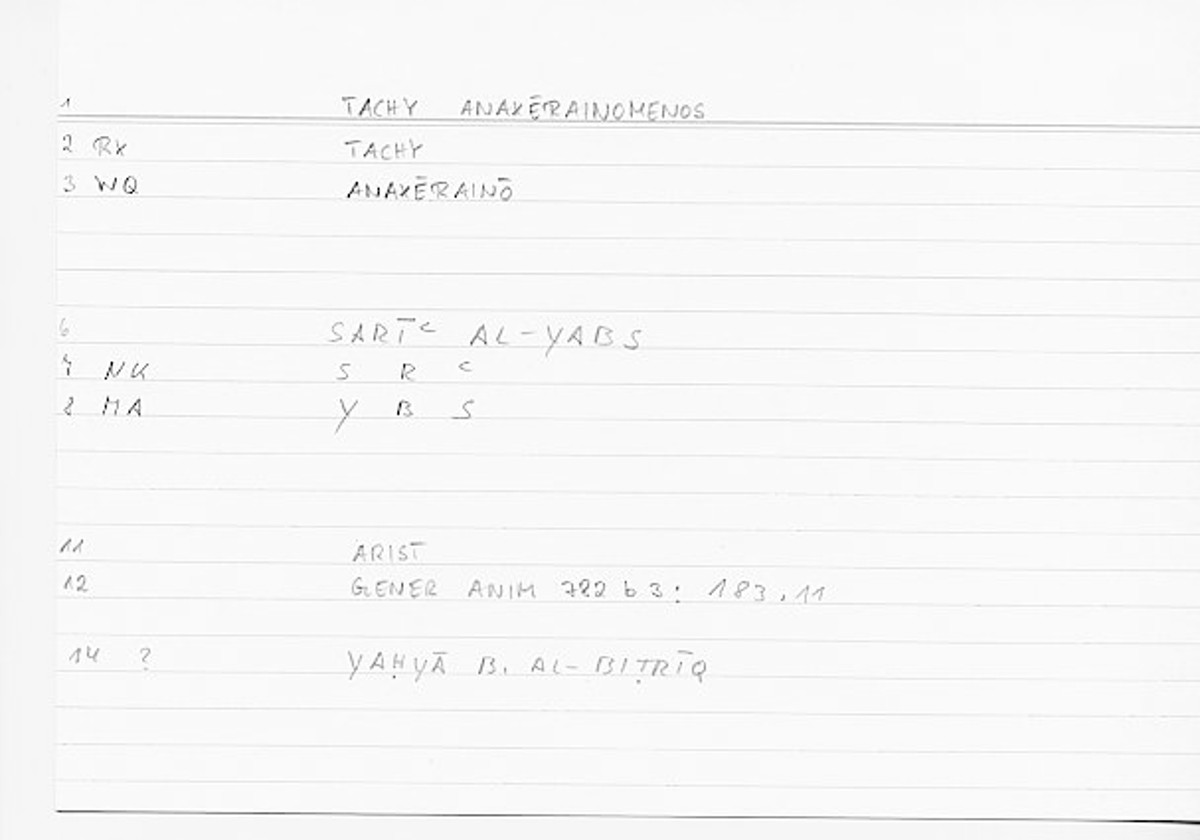 1 TACHY ANAXĒRAINOMENOS
2 RX TACHY
3 WQ ANAXĒRAINŌ
6 SARĪᶜ AL-YABS
7 NK S R ᶜ
8 MA Y B S
11 ARIST
12 GENER ANIM 782 b 3: 183,11
14 ? YAḤYĀ B. AL-BIṬRĪQ